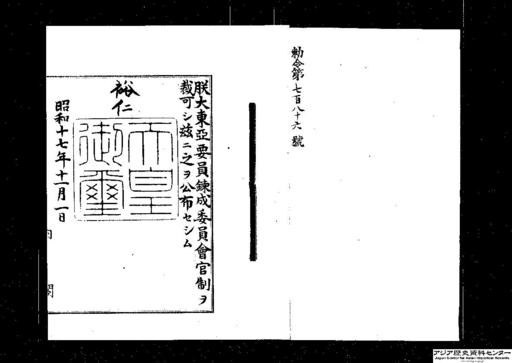 勅令第七百八十六號
朕大東亞要員鍊成委員會官制ヲ
裁可シ玆ニ之ヲ公布セシム
裕仁
天皇
御璽
昭和十七年十一月一日
内閣
アジア歴史資料センター
Japan Center for Asian Historical Records